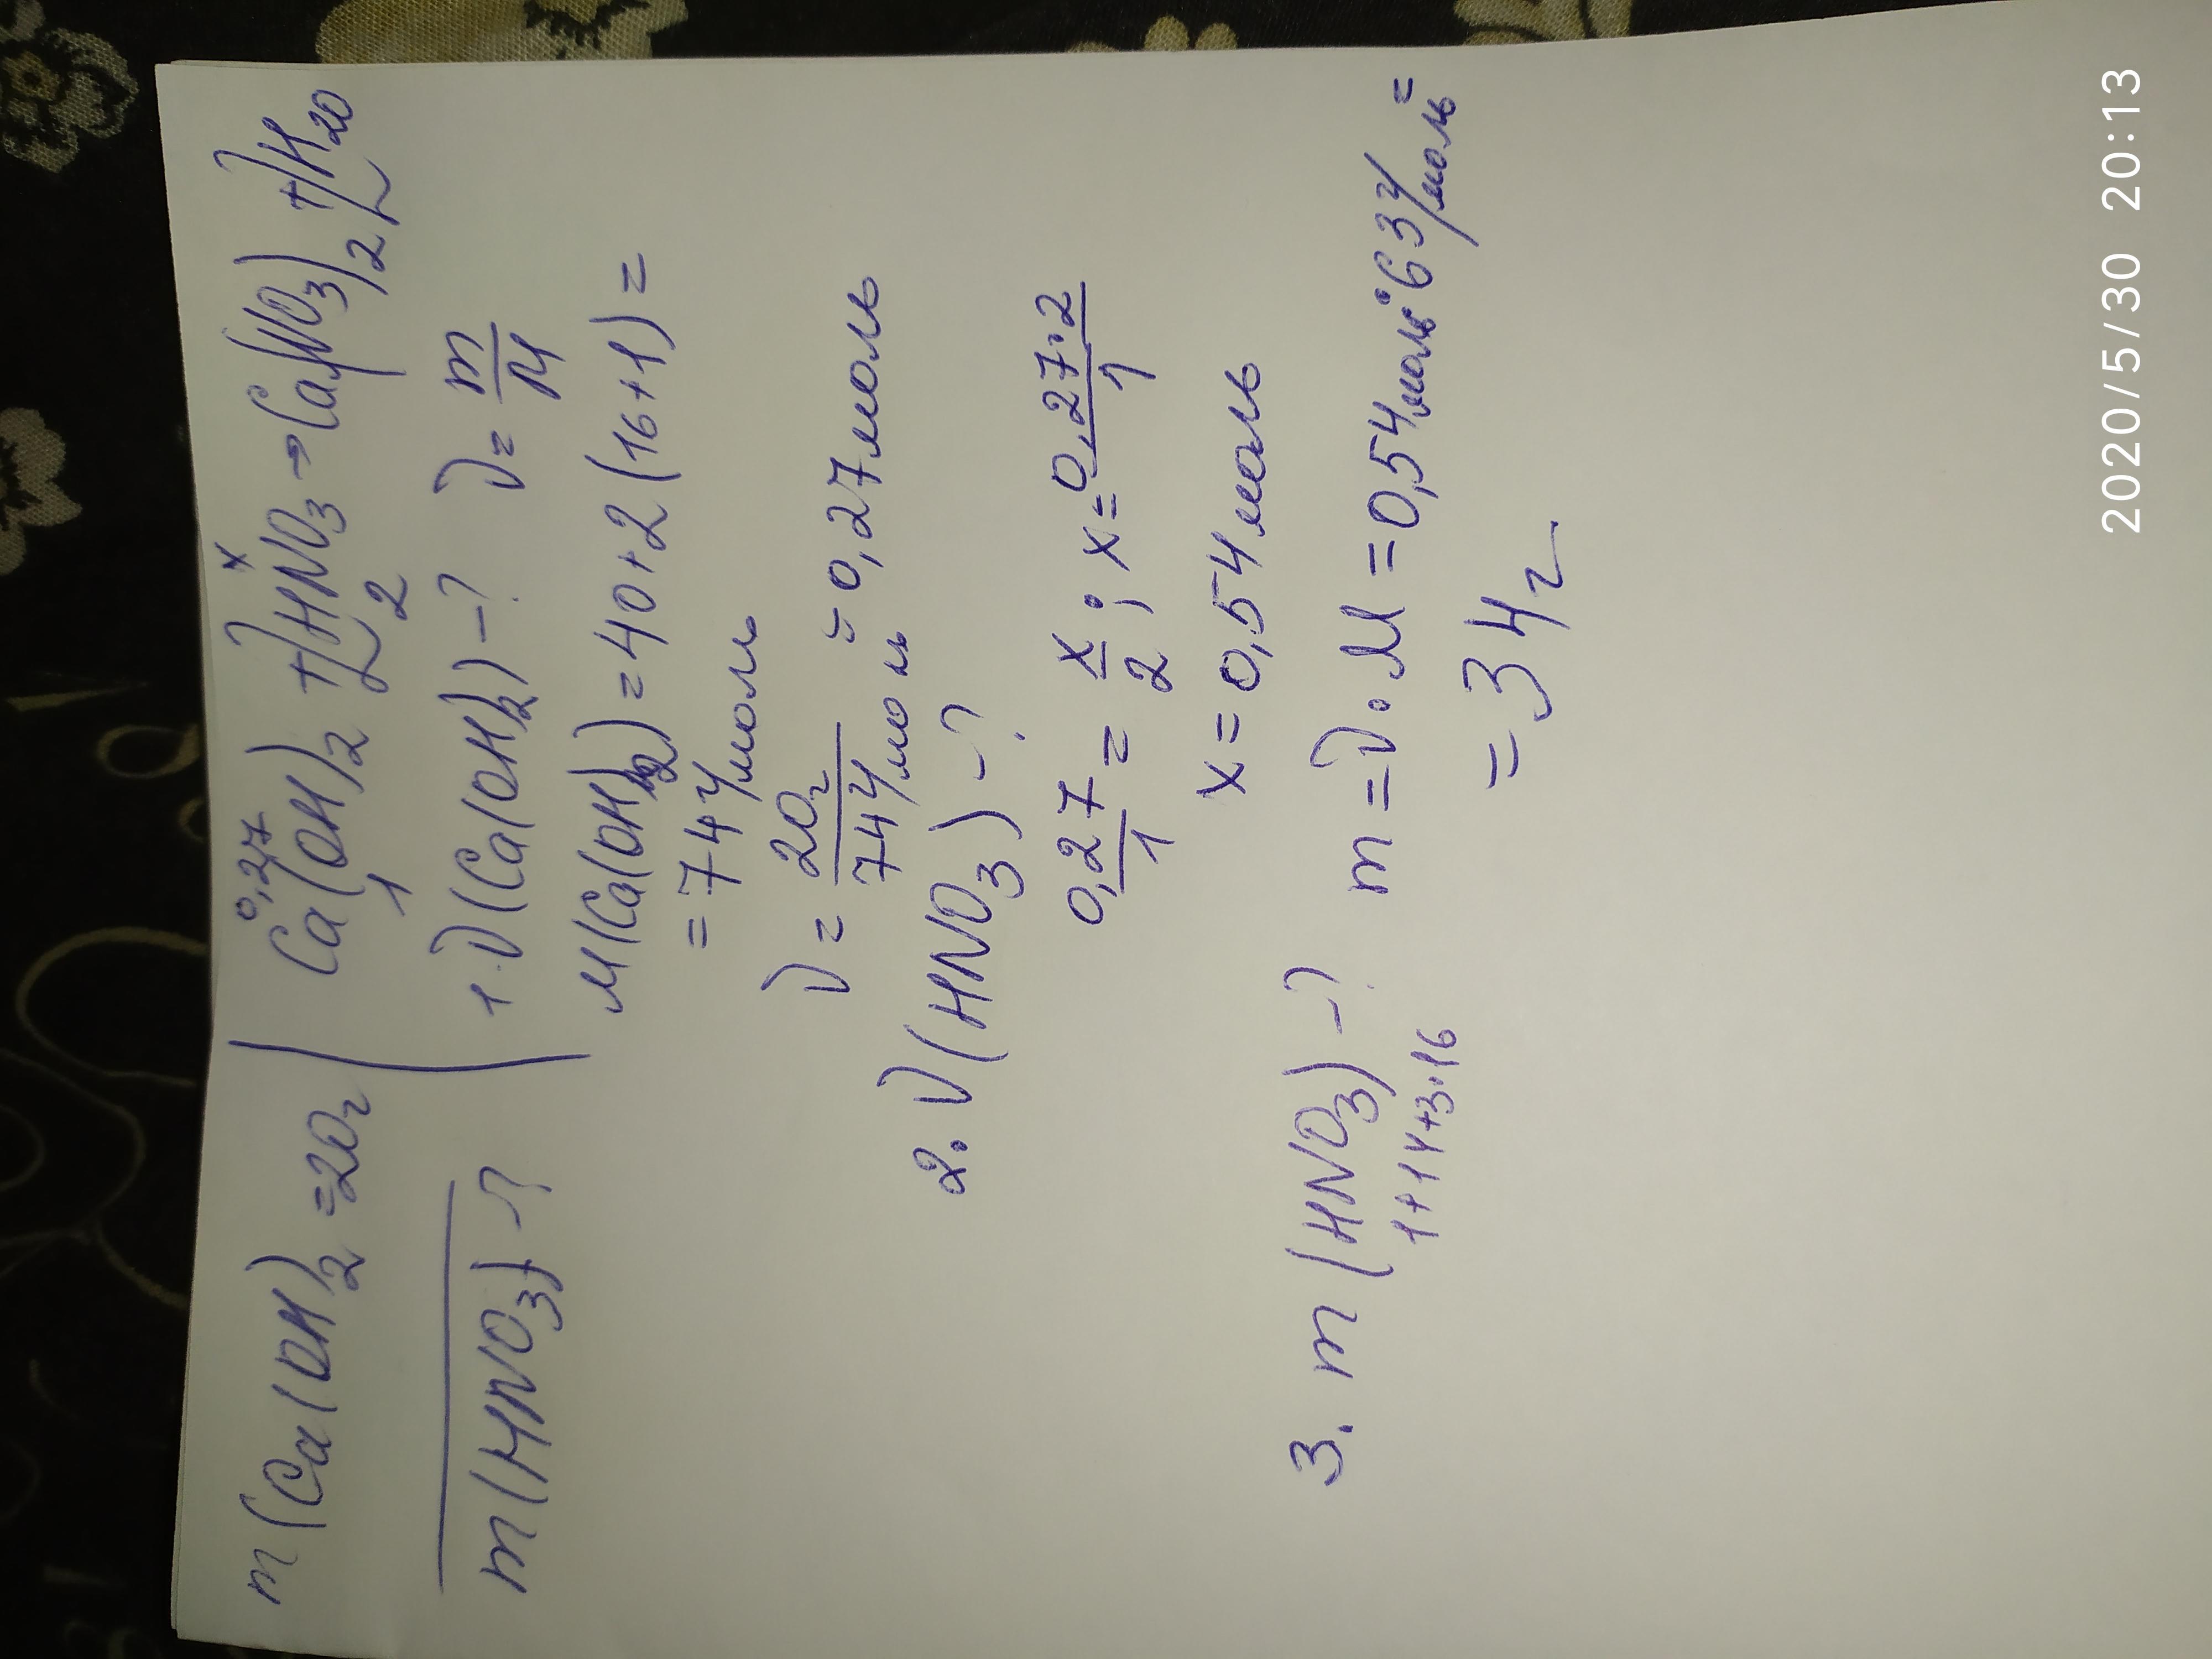 m(Ca(OH)2=20г
Ca(OH)2 + 2HNO3 → Ca(NO3)2 + 2H2O
0,27 x
1 2
m(HNO3) -?
1. ν(Ca(OH)2) -? ν = m/M
M(Ca(OH)2) = 40+2(16+1) =
= 74 г/моль
ν = 20г / 74 г/моль = 0,27 моль
2. ν(HNO3) -?
0,27/1 = x/2 ; x = 0,27·2/1
x = 0,54 моль
3. m(HNO3) -? m = ν·M = 0,54 моль·63 г/моль =
1+14+3·16
= 34г
2020/5/30 20:13